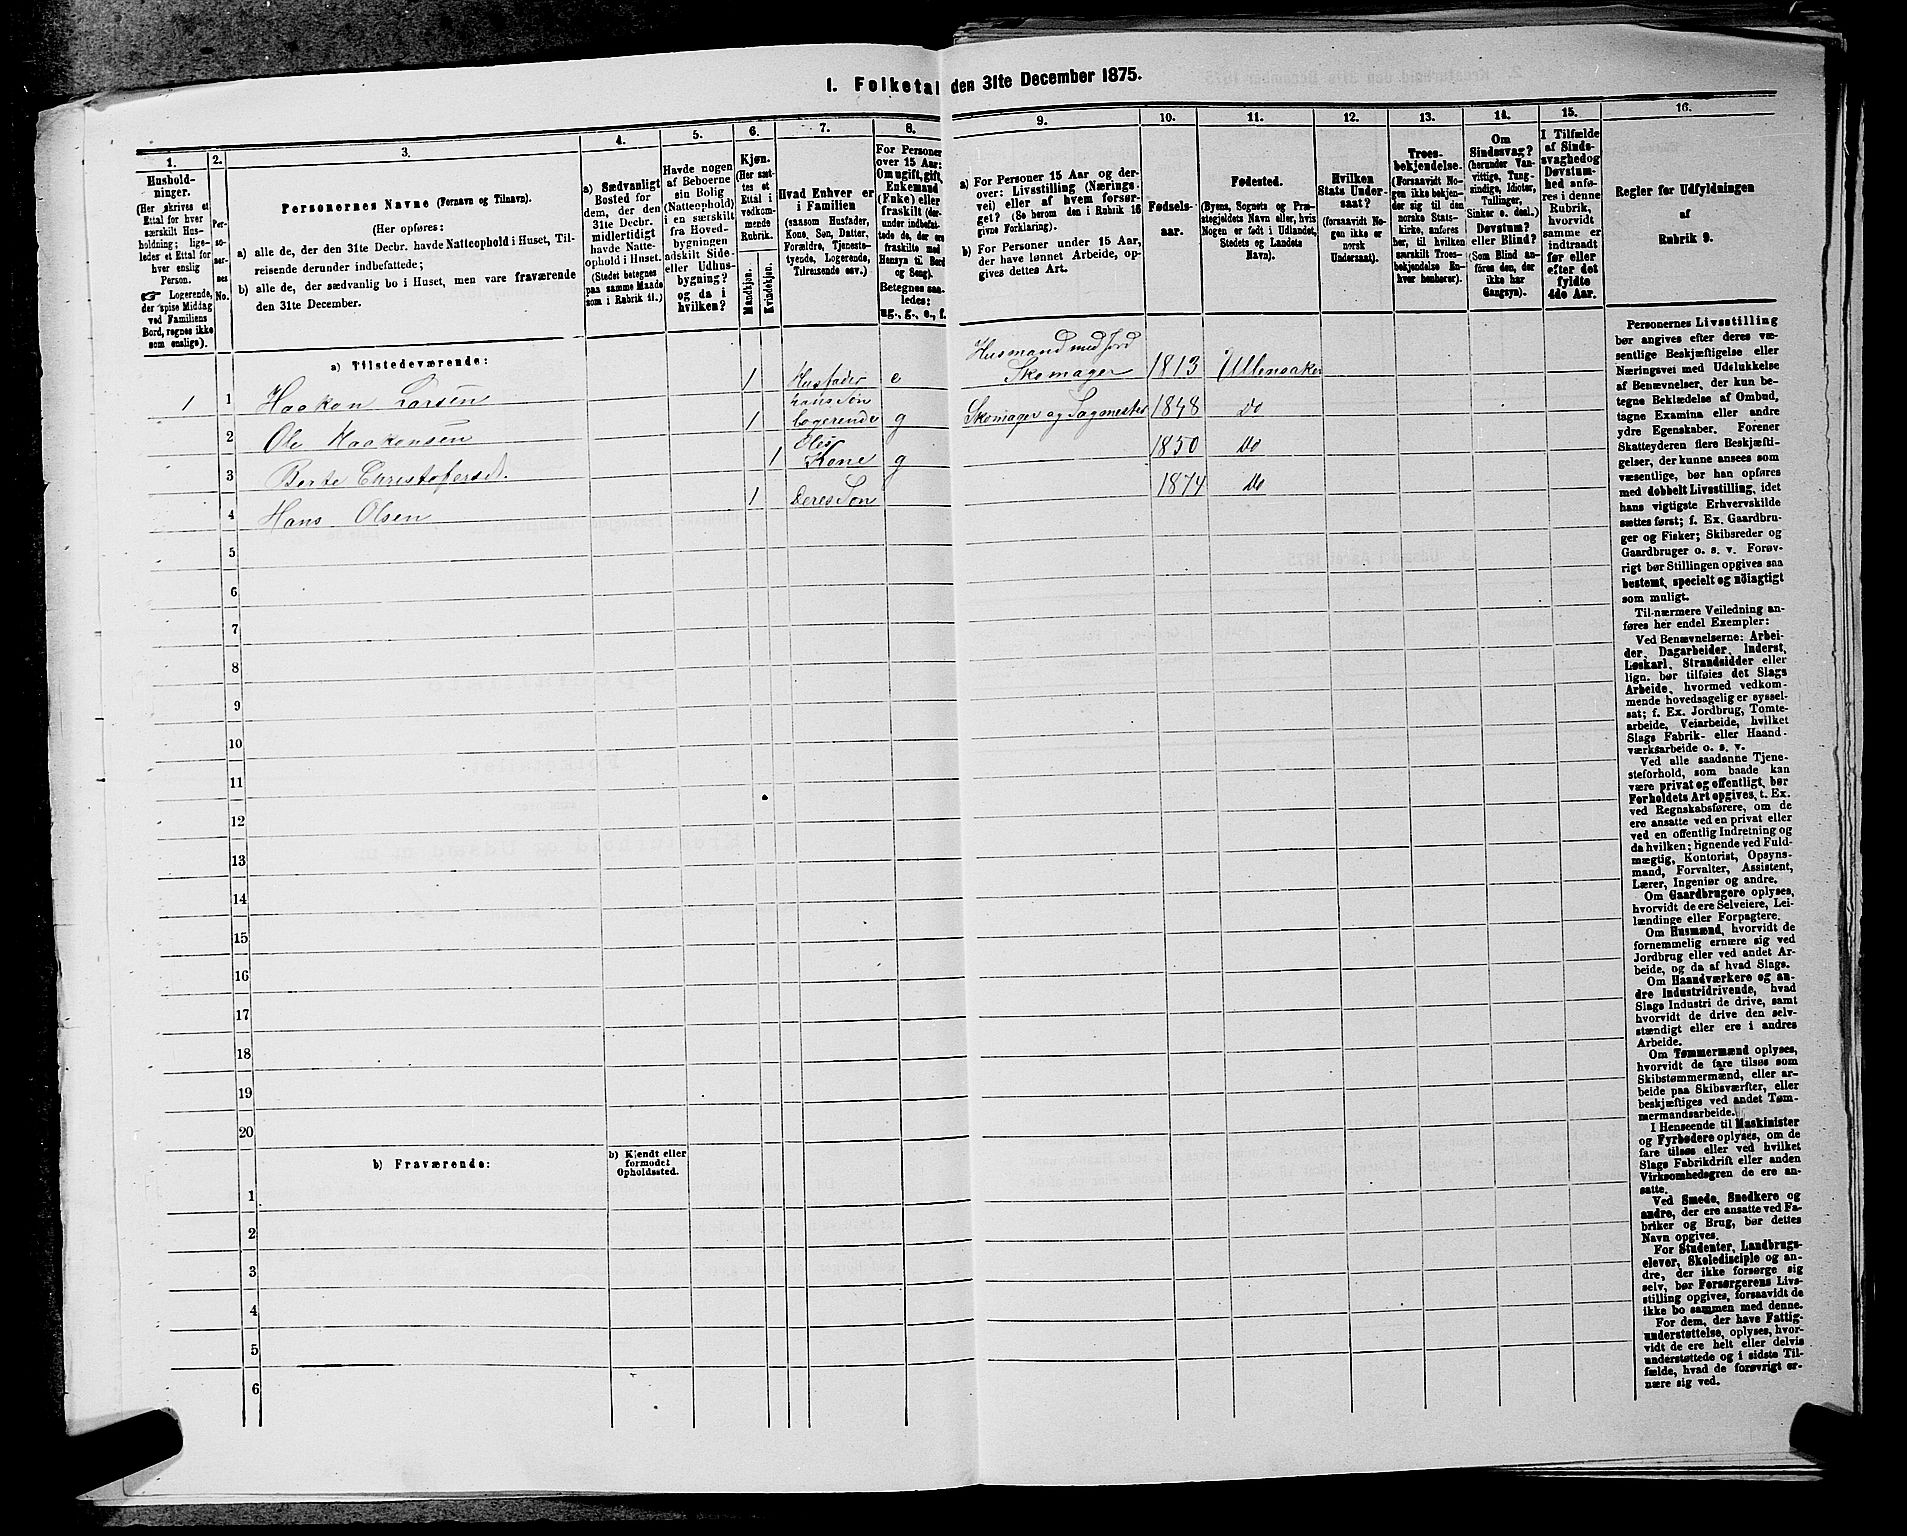 1. Folketal den 31te December 1875.
1.
Hushold-
ninger.
(Her skrives et
Ettal for hver
særskilt Hus-
holdning; lige-
ledes et Ettal for
hver enslig
Person.
Logerende,
der spise Middag
ved Familiens
Bord, regnes ikke
som enslige).
2.
Per-
so-
ner-
nes
No.
3.
Personernes Navne (Fornavn og Tilnavn).
(Her opføres:
a) alle de, der den 31te Decbr. havde Natteophold i Huset, Til-
reisende derunder indbefattede;
b) alle de, der sædvanlig bo i Huset, men vare fraværende
den 31te December.
4.
a) Sædvanligt
Bosted for
dem, der den
31te Decbr.
midlertidigt
havde Natte-
ophold i Huset.
(Stedet betegnes
paa samme Maade
som i Rubrik 11.)
5.
Havde nogen
af Beboerne
sin Bolig
(Natteophold)
i en særskilt
fra Hoved-
bygningen
adskilt Side-
eller Udhus-
bygning?
og da i
hvilken?
6.
Kjøn.
(Her sæt-
tes et
Ettal i
vedkom-
mende
Rubrik.
Mandkjøn.
Kvindekjøn.
7.
Hvad Enhver er
i Familien
(saasom Husfader,
Kone, Søn, Datter,
Forældre, Tjeneste-
tyende, Logerende,
Tilreisende osv.)
8.
For Personer
over 15 Aar:
Om ugift, gift,
Enkemand
(Enke) eller
fraskilt (der-
under indbefat-
tede de, der ere
fraskilte med
Hensyn til Bord
og Seng).
Betegnes saa-
ledes:
ug., g., e., f.
9.
a) For Personer 15 Aar og der-
over: Livsstilling (Nærings-
vei) eller af hvem forsør-
get? (Se herom den i Rubrik 16
givne Forklaring).
b) For Personer under 15 Aar,
der have lønnet Arbeide, op-
gives dettes Art.
10.
Fødsels-
aar.
11.
Fødested.
(Byens, Sognets og Præ-
stegjeldets Navn eller, hvis
Nogen er født i Udlandet,
Stedets og Landets
Navn).
12.
Hvilken
Stats Under-
saat?
(forsaavidt No-
gen ikke er
norsk
Undersaat).
13.
Troes-
bekjendelse.
(Forsaavidt No-
gen ikke bekjen-
der sig til den
norske Stats-
kirke, anføres
her, til hvilken
særskilt Troes-
bekjendelse En-
hver henhører).
14.
Om
Sindssvag?
(herunder Van-
vittige, Tung-
sindige, Idioter,
Tullinger,
Sinker o. desl.)
Døvstum?
eller Blind?
(Som Blind an-
føres den, der
ikke har
Gangsyn).
15.
I Tilfælde
af Sinds-
svaghed og
Døvstum-
hed anfø-
res i denne
Rubrik,
hvorvidt
samme er
indtraadt
før eller
efter det
fyldte
4de Aar.
16.
Regler for Udfyldningen
af
Rubrik 9.
a) Tilstedeværende:
1 1 Haakon Larsen 1 Husfader e Husmand med Jord
Skomager 1813 Ullensaker
2 Ole Haakonsen 1 hans Søn
logerende g Skomager og Sagmester 1848 do
3 Berte Christofersd. 1 Oles
Kone g 1850 do
4 Hans Olsen 1 deres Søn 1874 do
5
6
7
8
9
10
11
12
13
14
15
16
17
18
19
20
b) Fraværende:
b) Kjendt eller
formodet
Opholdssted.
1
2
3
4
5
6
Personernes Livsstilling
bør angives efter deres væ-
sentlige Beskjæftigelse eller
Næringsvei med Udelukkelse
af Benævnelser, der kun be-
tegne Beklædelse af Ombud,
tagne Examina eller andre
ydre Egenskaber. Forener
Skatteyderen flere Beskjæfti-
gelser, der kunne ansees som
væsentlige, bør han opføres
med dobbelt Livsstilling, idet
hans vigtigste Erhvervskilde
sættes først; f. Ex. Gaardbru-
ger og Fisker; Skibsreder og
Gaardbruger o. s. v. Forøv-
rigt bør Stillingen opgives saa
bestemt, specielt og nöiagtigt
som muligt.
Til nærmere Veiledning an-
føres her endel Exempler:
Ved Benævnelserne: Arbei-
der, Dagarbeider, Inderst,
Løskarl, Strandsidder eller
lign. bør tilføies det Slags
Arbeide, hvormed vedkom-
mende hovedsagelig er syssel-
sat; f. Ex. Jordbrug, Tomte-
arbeide, Veiarbeide, hvilket
Slags Fabrik- eller Haand-
værksarbeide o. s. v.
Ved alle saadanne Tjene-
steforhold, som baade kan
være privat og offentligt, bør
Forholdets Art opgives, t. Ex.
ved Regnskabsførere, om de
ere ansatte ved en privat eller
ved en offentlig Indretning og
da hvilken; lignende ved Fuld-
mægtig, Kontorist, Opsyns-
mand, Forvalter, Assistent,
Lærer, Ingeniør og andre.
Om Gaardbrugere oplyses,
hvorvidt de ere Selveiere, Lei-
lændinge eller Forpagtere.
Om Husmænd, hvorvidt de
fornemmelig ernære sig ved
Jordbrug eller ved andet Ar-
beide, og da af hvad Slags.
Om Haandværkere og an-
dre Industridrivende, hvad
Slags Industri de drive, samt
hvorvidt de drive den selv-
stændigt eller ere i andres
Arbeide.
Om Tømmermænd oplyses,
hvorvidt de fare tilsøs som
Skibstømmermænd, eller ar-
beide paa Skibsværfter, eller
beskjæftiges ved andet Tøm-
mermandsarbeide.
I Henseende til Maskinister
og Fyrbødere oplyses, om de
fare tilsøs eller ved hvilket
Slags Fabrikdrift eller anden
Virksomhedsgren de ere an-
satte.
Ved Smede, Snedkere og
andre, der ere ansatte ved Fa-
briker og Brug, bør dettes
Navn opgives.
For Studenter, Landbrugs-
elever, Skoledisciple og an-
dre, der ikke forsørge sig
selv, bør Forsørgerens Livs-
stilling opgives, forsaavidt de
ikke bo sammen med denne.
For dem, der have Fattig-
understøttelse, oplyses, hvor-
vidt de ere helt eller delvis
understøttede og i sidste Til-
fælde, hvad de forøvrigt er-
nære sig ved.